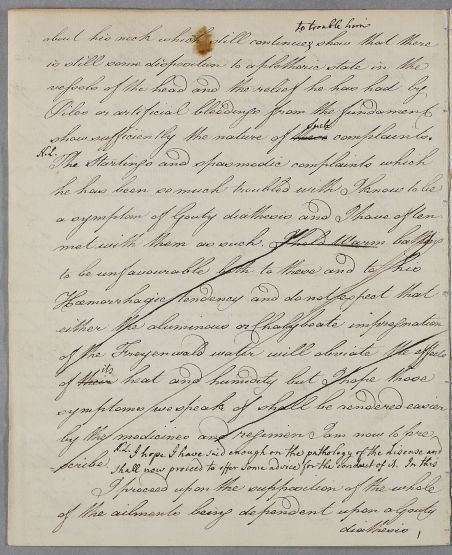 to trouble him
about his neck which still continues show that there
is still some disposition to a plethoric state in the
vessels of the head and the relief he has had by
Piles or artificial bleedings from the fundament
such
show sufficiently the nature of these complaints.
N.L.
The Startings and spasmodic complaints which
he has been so much troubled with I know to be
a symptom of Gouty diathesis and I have often
met with them as such. I hold warm bathing
to be unfavourable both to these and to his
Hæmorrhagic tendency and do not expect that
either the aluminous or Chalybeate impregnation
of the Freyenwald water will obviate the effects
its
of their heat and humidity but I hope those
symptoms we speak of shall be rendered easier
by the medicines and regimen I am now to pre
scribe. N.L. I hope I have said enough on the pathology of the disease and
shall now proceed to offer some advice for the conduct of it. In this
I proceed upon the supposition of the whole
of the ailments being dependent upon a Gouty
diathesis